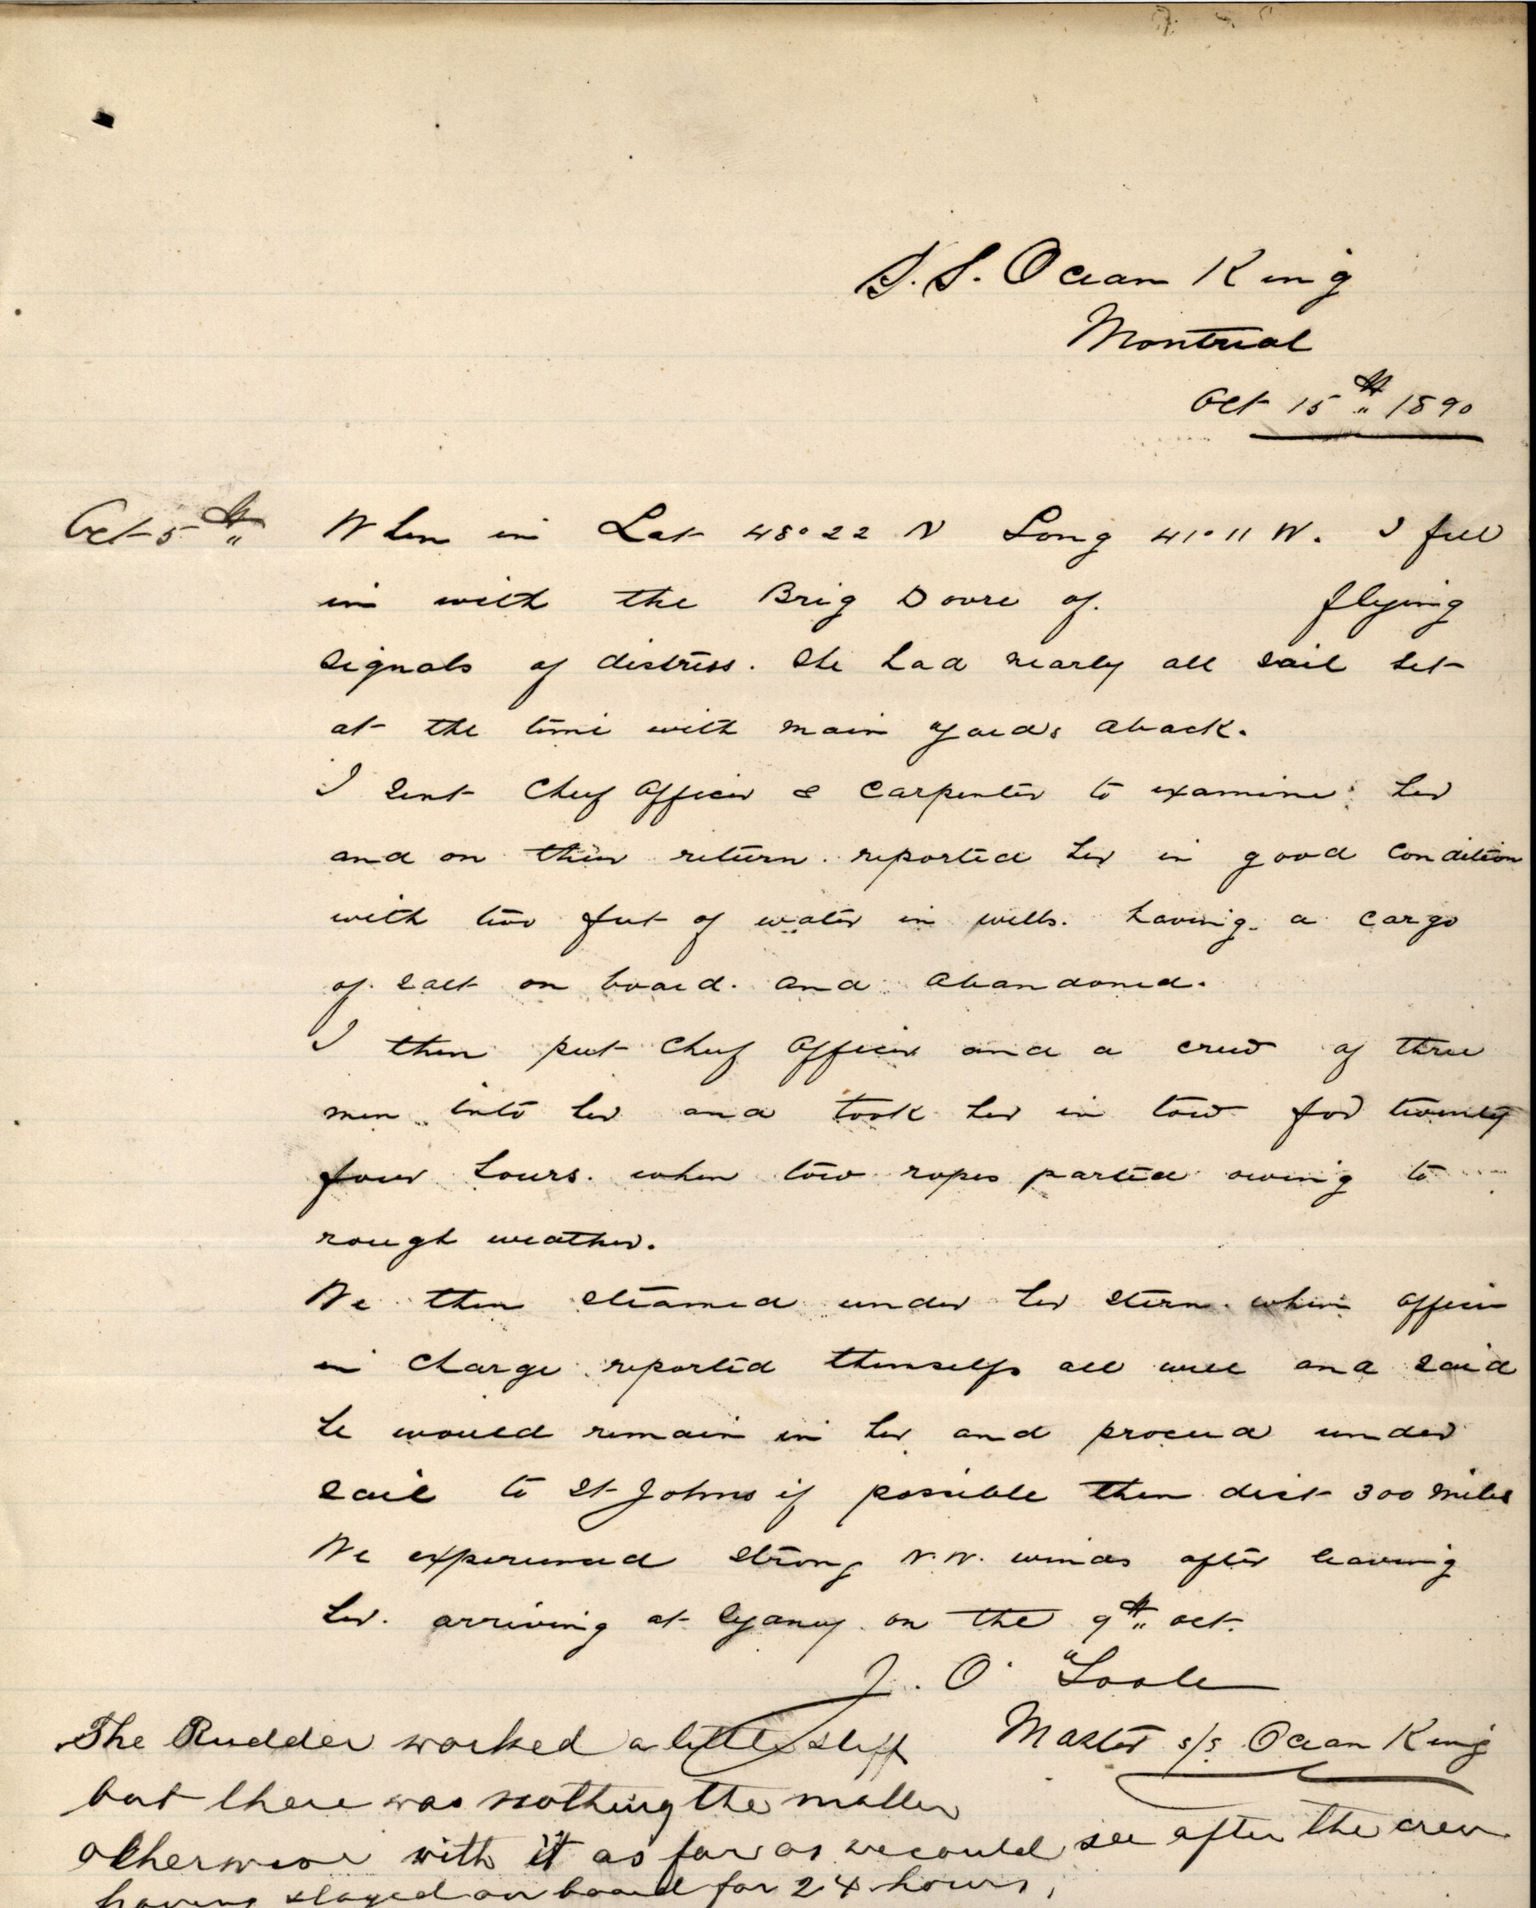 S.S. Ocean King
Montreal
Oct 15th 1890
Oct 5th When in Lat 48°22 N Long 41°11 W. I fell
in with the Brig Dovre of. flying
signals of distress. She had nearly all sail set
at the time with main yards aback.
I sent Chief Officer & Carpenter to examine her
and on their return. reported her in good condition
with two feet of water in wells. having a cargo
of salt on board. and abandoned.
I then put Chief Officer and a crew of three
men into her and took her in tow for twenty
four hours. when tow ropes parted owing to
rough weather.
We then steamed under her stern. when officer
in charge reported themselfs all well and said
he would remain in her and proceed under
sail to St Johns if possible then dist 300 miles
We experienced strong N.W. winds after leaving
her. arriving at on the 9th Oct.
J. O'Toole
Master s/s Ocean King
The Rudder worked a little stiff
but there was nothing the matter
otherwise with it as far as we could see after the crew
having stayed on board for 24 hours.